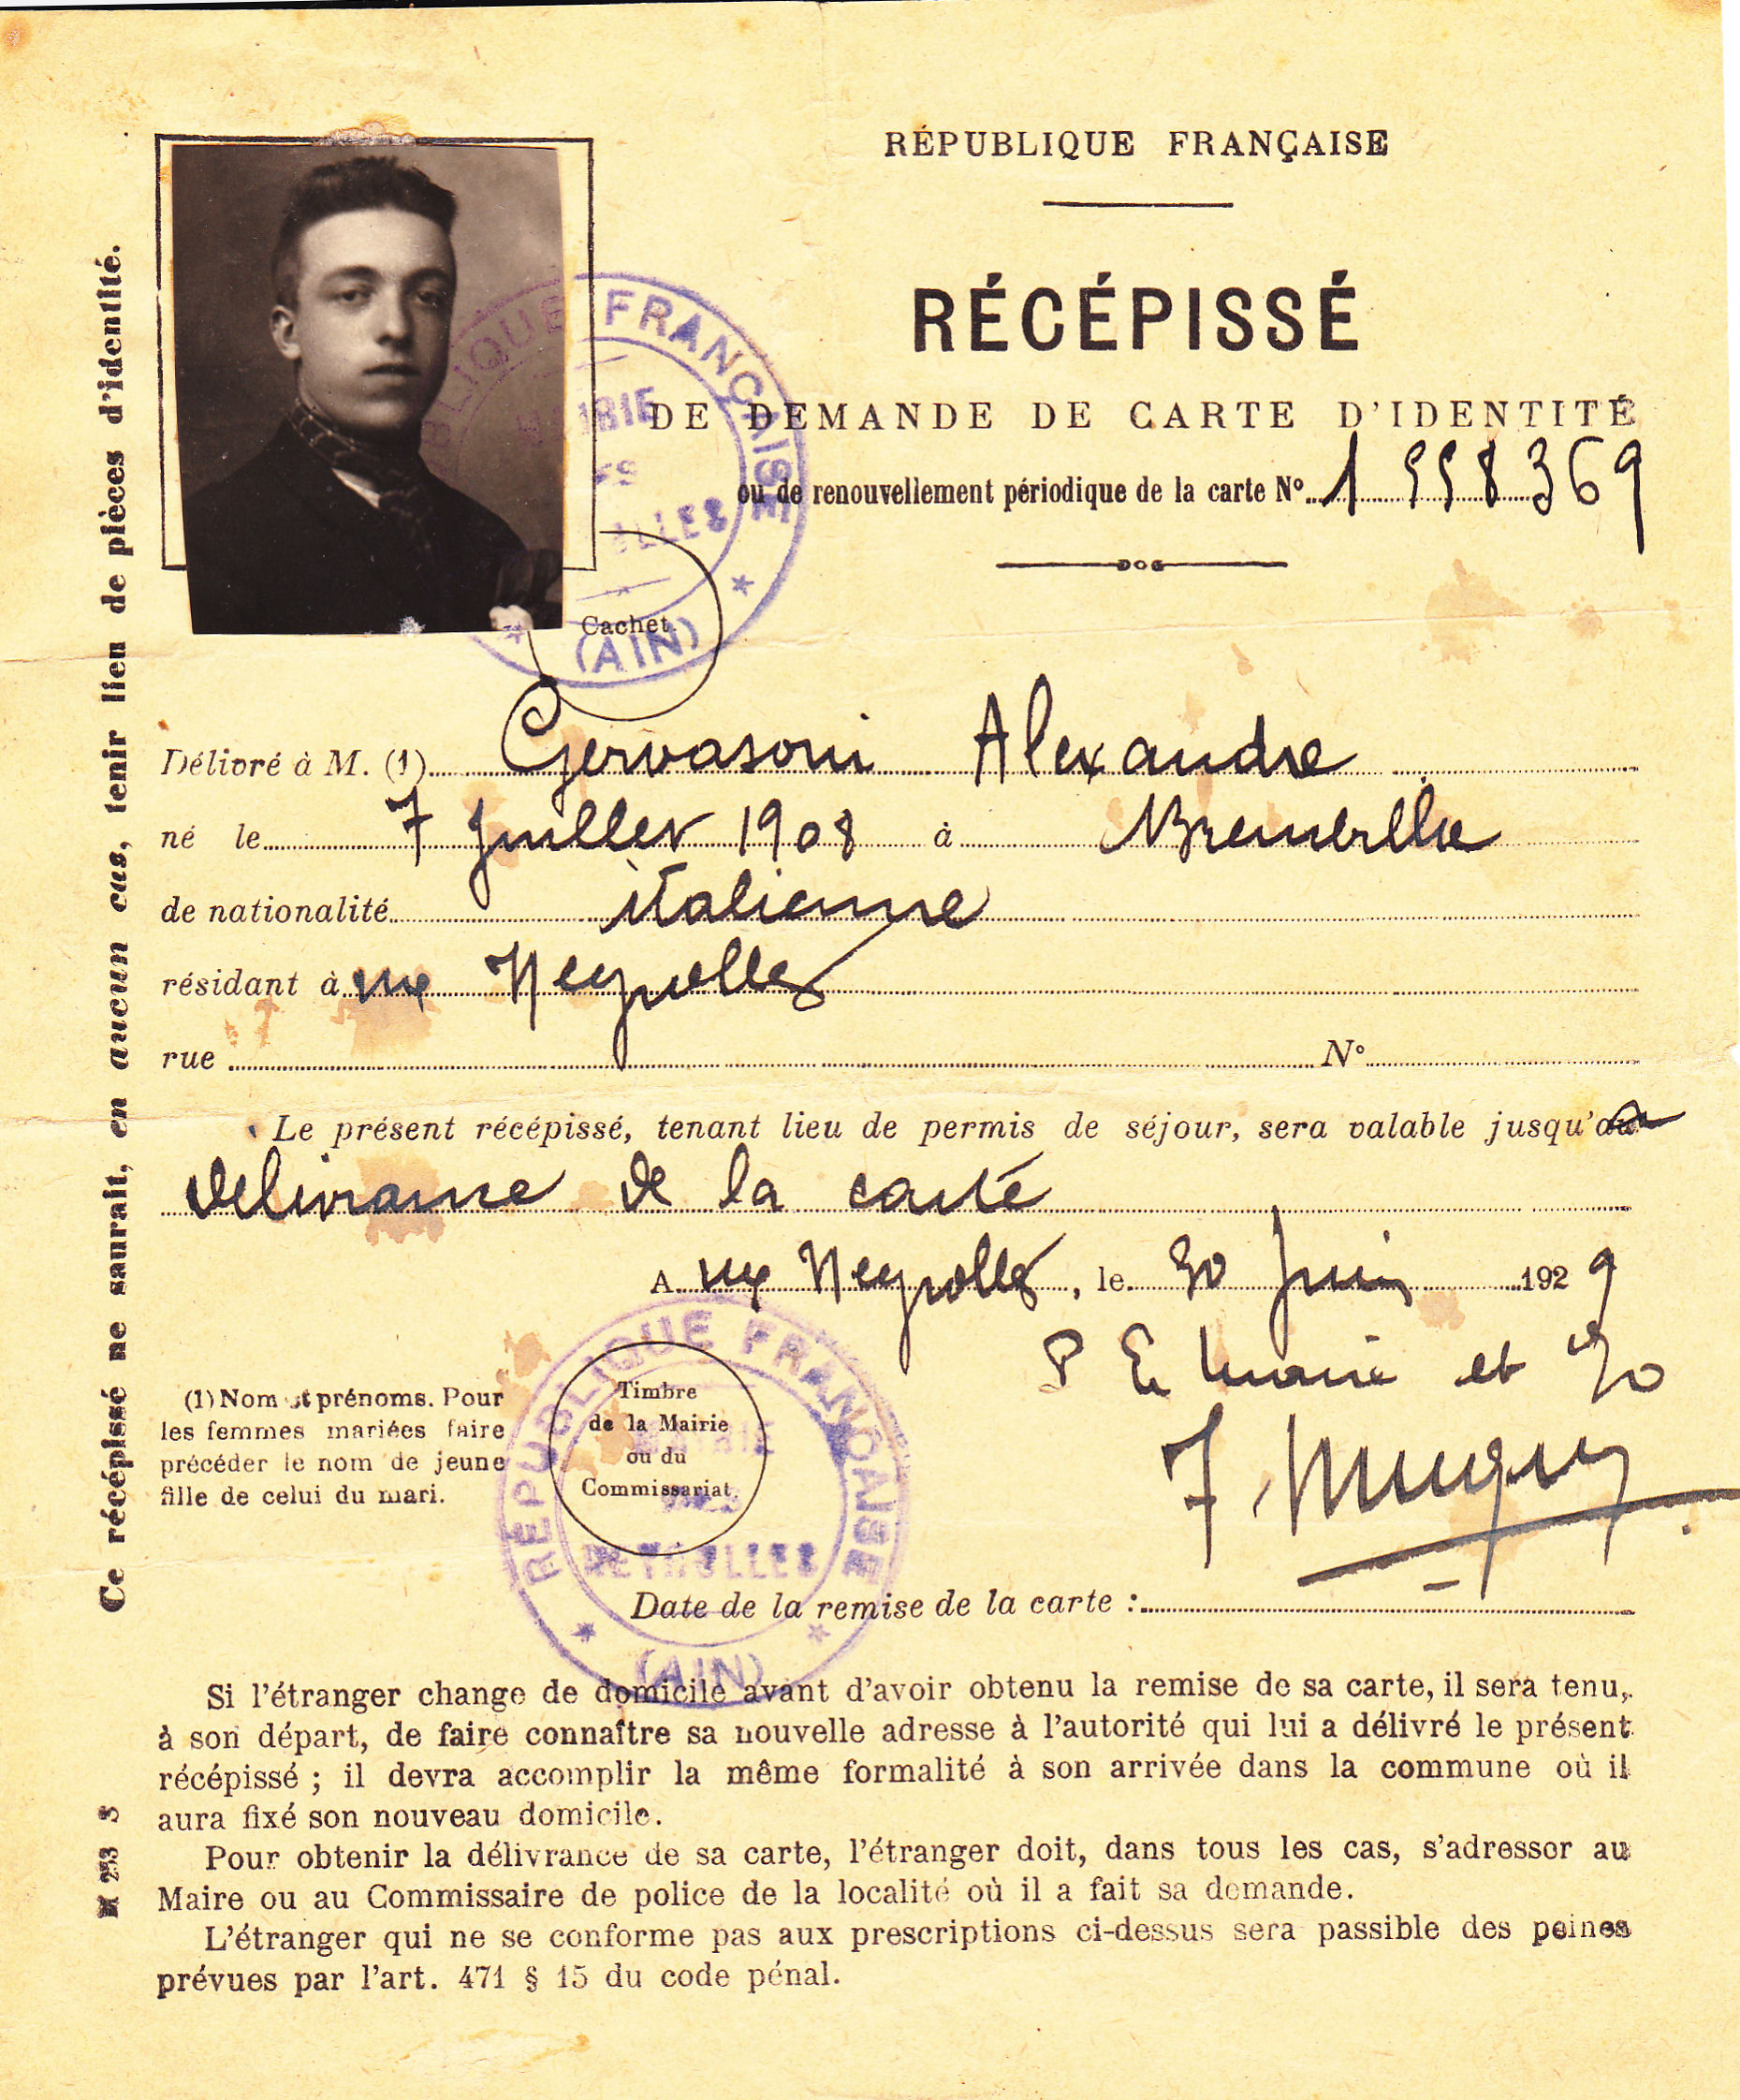 RÉPUBLIQUE FRANÇAISE
RÉCÉPISSÉ
DE DEMANDE DE CARTE D'IDENTITÉ
ou de renouvellement périodique de la carte N° 1 998 369
RÉPUBLIQUE FRANÇAISE
(AIN)
Cachet
Délivré à M. (1) Gervasoni Alexandre
né le 7 Juillet 1908 à
de nationalité italienne
résidant à Neyrolles
rue N°
Le présent récépissé, tenant lieu de permis de séjour, sera valable jusqu'
délivrance de la carte
A Neyrolles, le 30 Juin 1929
P Le maire et
(1) Nom et prénoms. Pour
les femmes mariées faire
précéder le nom de jeune
fille de celui du mari.
RÉPUBLIQUE FRANÇAISE
NEYROLLES
(AIN)
Timbre
de la Mairie
ou du
Commissariat.
Date de la remise de la carte :
Si l'étranger change de domicile avant d'avoir obtenu la remise de sa carte, il sera tenu,
à son départ, de faire connaître sa nouvelle adresse à l'autorité qui lui a délivré le présent
récépissé ; il devra accomplir la même formalité à son arrivée dans la commune où il
aura fixé son nouveau domicile.
Pour obtenir la délivrance de sa carte, l'étranger doit, dans tous les cas, s'adresser au
Maire ou au Commissaire de police de la localité où il a fait sa demande.
L'étranger qui ne se conforme pas aux prescriptions ci-dessus sera passible des peines
prévues par l'art. 471 § 15 du code pénal.
Ce récépissé ne saurait, en aucun cas, tenir lieu de pièces d'identité.